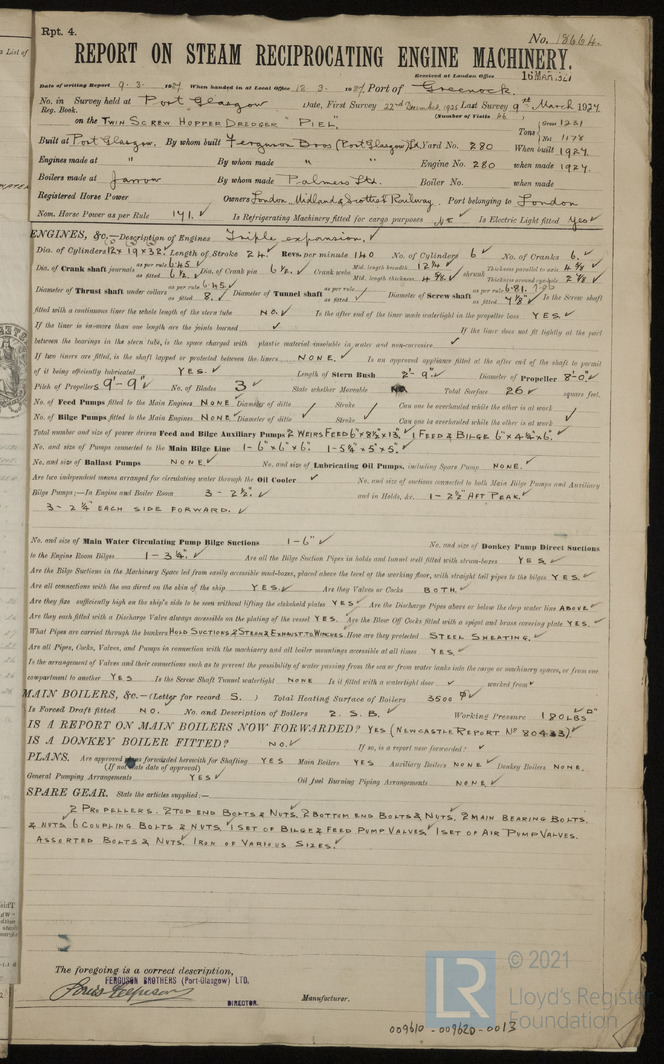 Rpt. 4.
No. 18664.
REPORT ON STEAM RECIPROCATING ENGINE MACHINERY.
Received at London Office 16 MAR 1927
Date of writing Report 9. 3. 1927 When handed in at Local Office 18 3. 1927 Port of Greenock.
No. in Survey held at Port Glasgow Date, First Survey 22nd December, 1925 Last Survey 9th March 1927
Reg. Book. (Number of Visits 46)
on the TWIN SCREW HOPPER DREDGER "PIEL". Tons Gross 1231 Net 1178
Built at Port Glasgow. By whom built Ferguson Bros (Port Glasgow) Ld Yard No. 280 When built 1927.
Engines made at " By whom made " " Engine No. 280 when made 1927.
Boilers made at Jarrow By whom made Palmers Ltd. Boiler No. when made
Registered Horse Power Owners London, Midland & Scottish Railway. Port belonging to London
Nom. Horse Power as per Rule 171. Is Refrigerating Machinery fitted for cargo purposes No Is Electric Light fitted Yes
ENGINES, &c.—Description of Engines Triple expansion.
Dia. of Cylinders 12 x 19 x 32. Length of Stroke 24. Revs. per minute 140 No. of Cylinders 6 No. of Cranks 6.
Dia. of Crank shaft journals as per rule 6.45 as fitted 6 1/2. Dia. of Crank pin 6 1/2. Crank webs Mid. length breadth 12 1/4 Mid. length thickness 4 3/8. shrunk Thickness parallel to axis 4 3/8 Thickness around eye-hole 2 7/8
Diameter of Thrust shaft under collars as per rule 6.45 as fitted 8. Diameter of Tunnel shaft as per rule as fitted Diameter of Screw shaft as per rule 6.81. 7.06 as fitted 7 1/8". Is the Screw shaft
fitted with a continuous liner the whole length of the stern tube NO. Is the after end of the liner made watertight in the propeller boss YES.
If the liner is in more than one length are the joints burned If the liner does not fit tightly at the part
between the bearings in the stern tube, is the space charged with plastic material insoluble in water and non-corrosive
If two liners are fitted, is the shaft lapped or protected between the liners NONE. Is an approved appliance fitted at the after end of the shaft to permit
of it being efficiently lubricated YES. Length of Stern Bush 2'- 9". Diameter of Propeller 8'-0"
Pitch of Propellers 9'-9" No. of Blades 3 State whether Moveable No Total Surface 26 square feet.
No. of Feed Pumps fitted to the Main Engines NONE Diameter of ditto Stroke Can one be overhauled while the other is at work
No. of Bilge Pumps fitted to the Main Engines NONE Diameter of ditto Stroke Can one be overhauled while the other is at work
Total number and size of power driven Feed and Bilge Auxiliary Pumps 2 WEIRS FEED 6" x 8 1/2" x 13". 1 FEED & BILGE 6" x 4 1/4" x 6".
No. and size of Pumps connected to the Main Bilge Line 1- 6" x 6" x 6". 1- 5 1/4" x 5" x 5".
No. and size of Ballast Pumps NONE No. and size of Lubricating Oil Pumps, including Spare Pump NONE.
Are two independent means arranged for circulating water through the Oil Cooler No. and size of suctions connected to both Main Bilge Pumps and Auxiliary
Bilge Pumps;—In Engine and Boiler Room 3 - 2 1/2". and in Holds, &c. 1- 2 1/2" AFT PEAK.
3 - 2 1/4" EACH SIDE FORWARD.
No. and size of Main Water Circulating Pump Bilge Suctions 1-6" No. and size of Donkey Pump Direct Suctions
to the Engine Room Bilges 1 - 3 1/4". Are all the Bilge Suction Pipes in holds and tunnel well fitted with strum-boxes YES.
Are the Bilge Suctions in the Machinery Space led from easily accessible mud-boxes, placed above the level of the working floor, with straight tail pipes to the bilges YES.
Are all connections with the sea direct on the skin of the ship YES. Are they Valves or Cocks BOTH.
Are they fixed sufficiently high on the ship's side to be seen without lifting the stokehold plates YES Are the Discharge Pipes above or below the deep water line ABOVE
Are they each fitted with a Discharge Valve always accessible on the plating of the vessel YES. Are the Blow Off Cocks fitted with a spigot and brass covering plate YES.
What Pipes are carried through the bunkers HOLD SUCTIONS & STEAM & EXHAUST TO WINCHES. How are they protected STEEL SHEATING.
Are all Pipes, Cocks, Valves, and Pumps in connection with the machinery and all boiler mountings accessible at all times YES.
Is the arrangement of Valves and their connections such as to prevent the possibility of water passing from the sea or from water tanks into the cargo or machinery spaces, or from one
compartment to another YES Is the Screw Shaft Tunnel watertight NONE Is it fitted with a watertight door worked from
MAIN BOILERS, &c.—(Letter for record S. ) Total Heating Surface of Boilers 3500
Is Forced Draft fitted NO. No. and Description of Boilers 2. S. B. Working Pressure 180 LBS
IS A REPORT ON MAIN BOILERS NOW FORWARDED? YES (NEWCASTLE REPORT No 80433).
IS A DONKEY BOILER FITTED? NO. If so, is a report now forwarded?
PLANS. Are approved plans forwarded herewith for Shafting YES Main Boilers YES Auxiliary Boilers NONE Donkey Boilers NONE.
(If not state date of approval)
General Pumping Arrangements YES Oil fuel Burning Piping Arrangements NONE
SPARE GEAR. State the articles supplied:—
2 PROPELLERS. 2 TOP END BOLTS & NUTS. 2 BOTTOM END BOLTS & NUTS. 2 MAIN BEARING BOLTS.
& NUTS. 6 COUPLING BOLTS & NUTS. 1 SET OF BILGE & FEED PUMP VALVES. 1 SET OF AIR PUMP VALVES.
ASSORTED BOLTS & NUTS. IRON OF VARIOUS SIZES.
The foregoing is a correct description,
FERGUSON BROTHERS (Port-Glasgow) LTD.
Louis Ferguson
DIRECTOR. Manufacturer.
009610 - 009620 - 0013
LR
© 2021
Lloyd's Register
Foundation